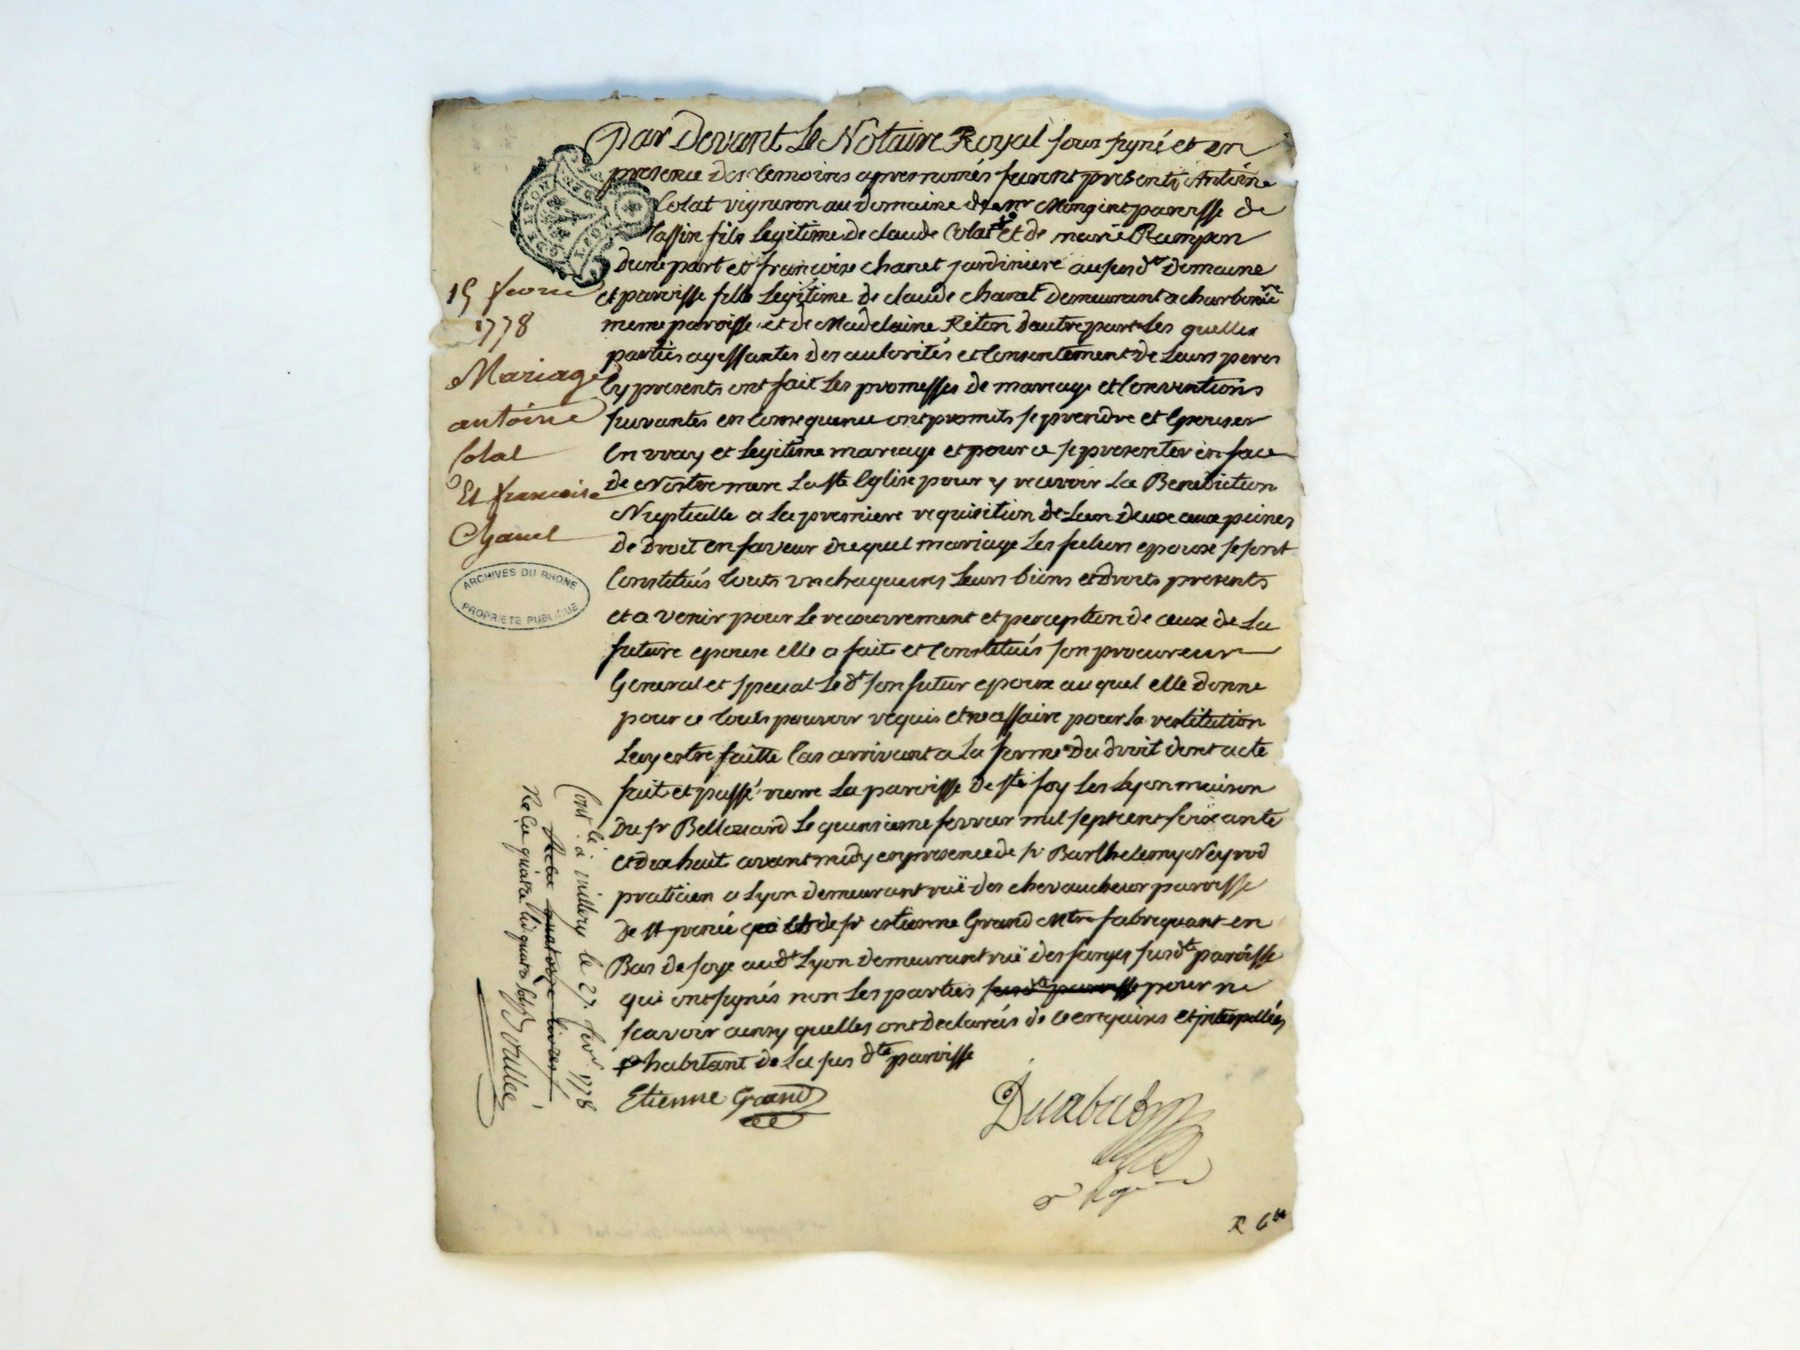 Par Devant Le Notaire Royal sous signé et en
presence des temoins apres només furent presents Antoine
Colat vigneron au domaine de mr Mongint paroisse de
Tassin fils Legitime de claude Colat et de marie Rampon
dune part et francoise chanet jardiniere au susdt domaine
et paroisse fille Legitime de claude chanet demeurant a charbonre
meme paroisse et de Madelaine Reton dautre part Les quelles
parties agissantes des autorités et Consentement de Leurs peres
Cy presents ont fait Les promesses de mariage et Conventions
suivantes en Consequence ont promits se prendre et Epouser
En vray et Legitime mariage et pour ce se presenter en face
de Nostre mere La ste Eglise pour y recevoir La Benediction
Nuptialle a La premiere requisition de Lun deux aux peines
de droit en faveur duquel mariage Les futurs epoux se sont
Constitués touts un chaqueuns Leurs biens et droits presents
et a venir pour Le recouvrement et perception de ceux de La
future epouse elle a fait et Constitués son procureur
General et special Le dt son futur epoux au quel elle donne
pour ce touts pouvoir requis et necessaire pour la restitution
Luy estre faitte Cas arrivant a La forme du droit dont acte
fait et passé riere La paroisse de ste foy Les Lyon maison
du sr Bellouard Le quinsieme fevrier mil sept cent soixante
et dix huit avant midy en presence de sr Barthelemy Neyrod
praticien a Lyon demeurant ruë des chevaucheur paroisse
de st irenié et de sr estienne Grand Mtre fabriquant en
Bas de soye audt Lyon demeurant ruë des farges susdte paroisse
qui ont signés non Les parties susdte paroisse pour ne
scavoir ainsy quelles ont declarés de ce enquins et interpellées
habitant de La sus dte paroisse
Etienne Grand
15 fevrier
1778
Mariage
antoine
Colat
Et francoise
Chanet
ARCHIVES DU RHONE
PROPRIETE PUBLIQUE
Cont. lé à millery le 27 fevr 1778
Recu quatorze livres
Vallée
R 6